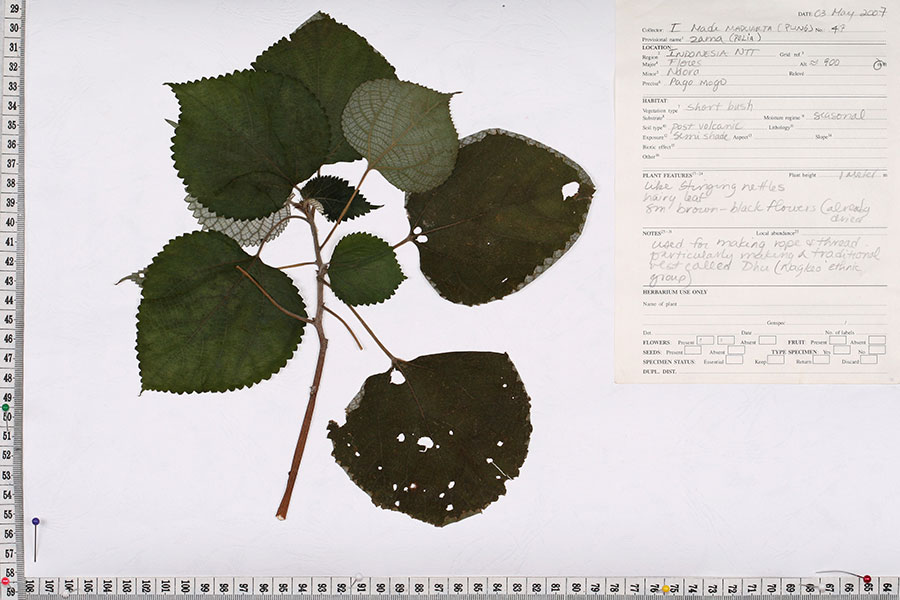 DATE 03 May 2007
Collector I Made MAHARTA (PUNG) No. 4?
Provisional name zama (PELIA)
LOCATION
Region INDONESIA NTT Grid ref
Major Flores Alt ≈ 900 m
Minor Ndora Relevé
Precise Pago Mogo
HABITAT
Vegetation type short bush
Substrate Moisture regime seasonal
Soil type post volcanic Lithology
Exposure Semi shade Aspect Slope
Biotic effect
Other
PLANT FEATURES Plant height 1 Meter m
like stinging nettles
hairy leaf
sm brown-black flowers (already
dried
NOTES Local abundance
used for making rope & thread.
particularly making a traditional
vest called Dhu (Nagkeo ethnic
group)
HERBARIUM USE ONLY
Name of plant
Genspec /
Det Date No. of labels
FLOWERS Present Absent FRUIT: Present Absent
SEEDS: Present Absent TYPE SPECIMEN Yes No
SPECIMEN STATUS: Essential Keep Return Discard
DUPL. DIST.
29
30
31
32
33
34
35
36
37
38
39
40
41
42
43
44
45
46
47
48
49
50
51
52
53
54
55
56
57
58
59
108 107 106 105 104 103 102 101 100 99 98 97 96 95 94 93 92 91 90 89 88 87 86 85 84 83 82 81 80 79 78 77 76 75 74 73 72 71 70 69 68 67 66 65 64